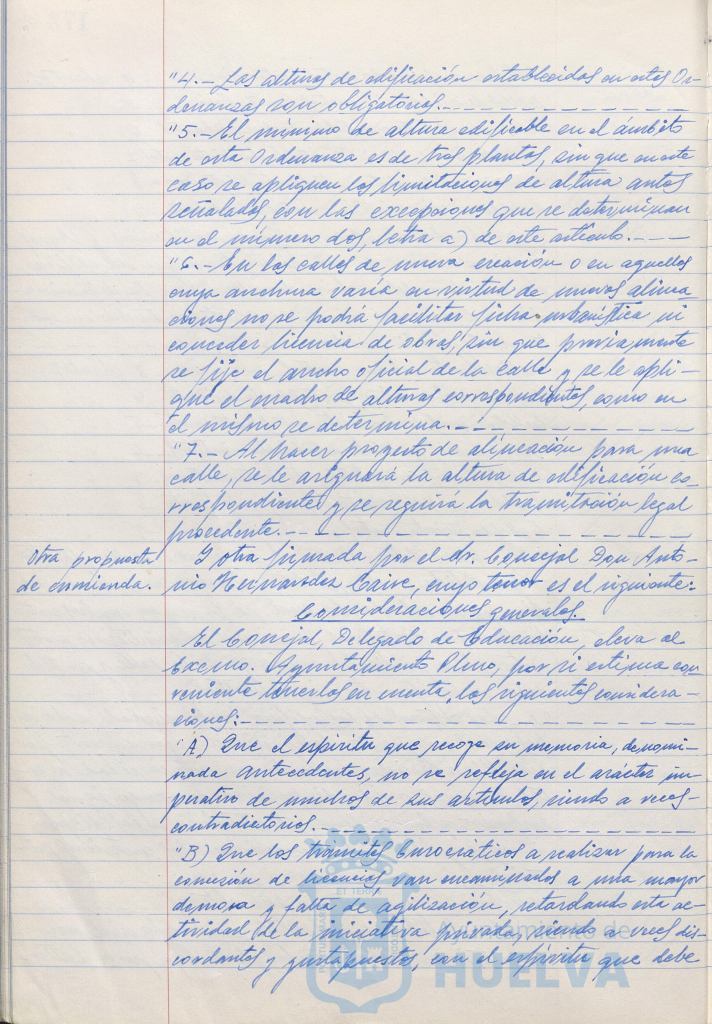 "4.- Las alturas de edificación establecidas en estas Or-
denanzas son obligatorias.
"5.- El mínimo de altura edificable en el ámbito
de esta Ordenanza es de tres plantas, sin que en este
caso se apliquen las limitaciones de altura antes
señaladas, con las excepciones que se determinan
en el número dos, letra a) de este artículo.
"6.- En las calles de nueva creación o en aquellas
cuya anchura varía en virtud de nuevas alinea-
ciones no se podrá facilitar ficha urbanística ni
conceder licencia de obras, sin que previamente
se fije el ancho oficial de la calle y se le apli-
que el cuadro de alturas correspondientes, como en
el mismo se determina.
"7.- Al hacer proyecto de alineación para una
calle, se le asignará la altura de edificación co-
rrespondiente y se seguirá la tramitación legal
procedente.
Otra propuesta
de enmienda.
Y otra firmada por el Sr. Concejal Don Anto-
nio Hernández Caire, cuyo tenor es el siguiente:
Consideraciones generales.
El Concejal, Delegado de Educación, eleva al
Excmo. Ayuntamiento Pleno, por si estima con-
veniente tenerlas en cuenta, las siguientes considera-
ciones:
"A) Que el espíritu que recoge su memoria, denomi-
nada antecedentes, no se refleja en el carácter im-
perativo de muchos de sus artículos, siendo a veces
contradictorios.
"B) Que los trámites burocráticos a realizar para la
concesión de licencias van encaminados a una mayor
demora y falta de agilización, retardando esta ac-
tividad de la iniciativa privada, siendo a veces dis-
cordantes y yuxtapuestos, con el espíritu que debe
Ayuntamiento de
HUELVA